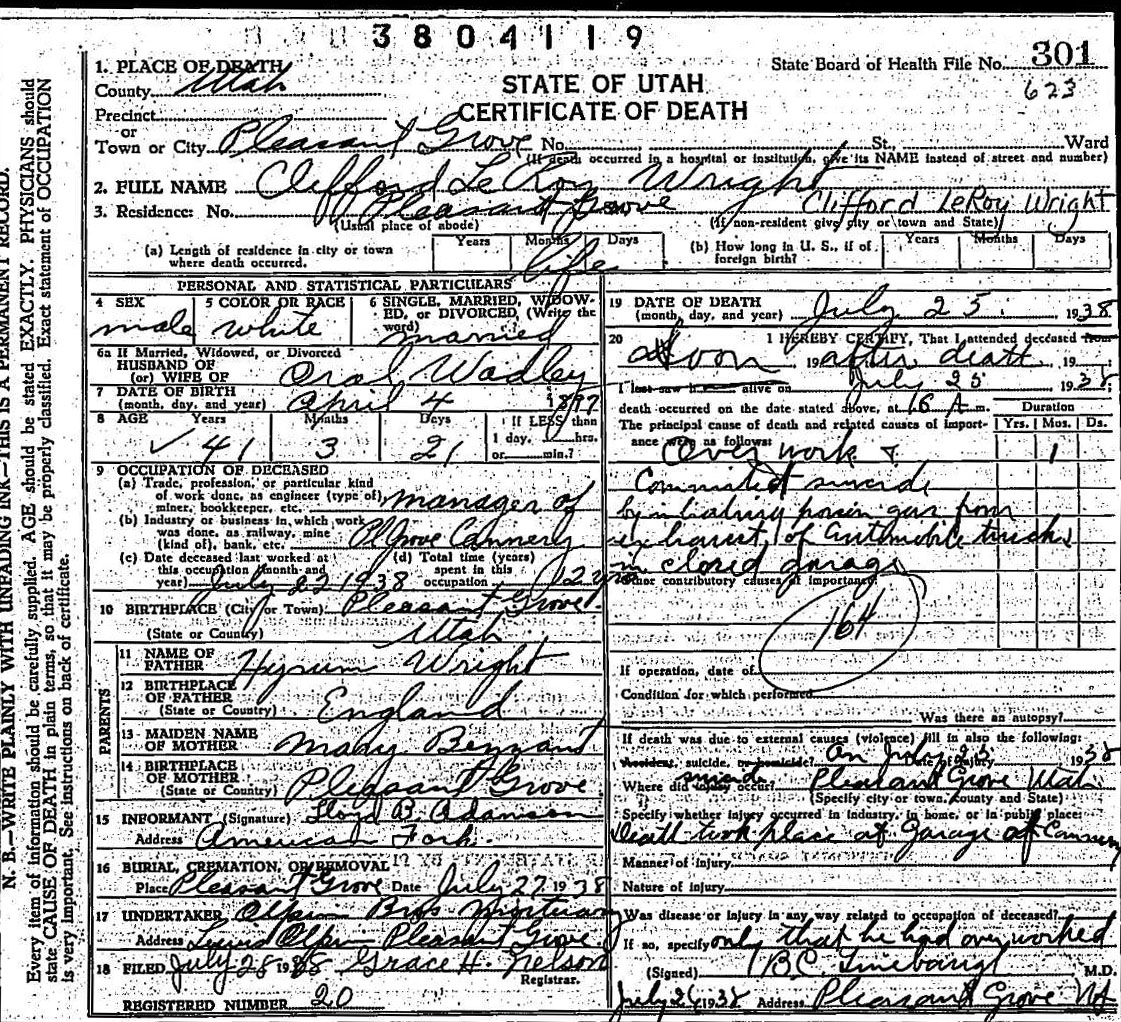 3804119
State Board of Health File No. 301
623
STATE OF UTAH
CERTIFICATE OF DEATH
1. PLACE OF DEATH
County Utah
Precinct
or
Town or City Pleasant Grove No. St., Ward
(If death occurred in a hospital or institution, give its NAME instead of street and number)
2. FULL NAME Clifford LeRoy Wright
3. Residence: No. Pleasant Grove Clifford LeRoy Wright
(Usual place of abode) (If non-resident give city or town and State)
(a) Length of residence in city or town where death occurred. Years Months Days life
(b) How long in U. S., if of foreign birth? Years Months Days
PERSONAL AND STATISTICAL PARTICULARS
4 SEX male
5 COLOR OR RACE white
6 SINGLE, MARRIED, WIDOWED, or DIVORCED, (Write the word) married
6a If Married, Widowed, or Divorced
HUSBAND OF
(or) WIFE OF Oral Wadley
7 DATE OF BIRTH
(month, day, and year) April 4 1897
8 AGE Years Months Days If LESS than
41 3 21 1 day, hrs.
or min.?
9 OCCUPATION OF DECEASED
(a) Trade, profession, or particular kind
of work done, as engineer (type of),
miner, bookkeeper, etc. manager of
(b) Industry or business in which work
was done, as railway, mine
(kind of), bank, etc. Pl Grove Cannery
(c) Date deceased last worked at
this occupation (month and
year) July 22 1938
(d) Total time (years)
spent in this
occupation 12 yrs
10 BIRTHPLACE (City or Town) Pleasant Grove
(State or Country) Utah
PARENTS
11 NAME OF
FATHER Hyrum Wright
12 BIRTHPLACE
OF FATHER
(State or Country) England
13 MAIDEN NAME
OF MOTHER Mary Bezzant
14 BIRTHPLACE
OF MOTHER
(State or Country) Pleasant Grove
15 INFORMANT (Signature) Lloyd B. Adamson
Address American Fork.
16 BURIAL, CREMATION, OR REMOVAL
Place Pleasant Grove Date July 27 1938
17 UNDERTAKER Olpin Bros Mortuary
Address Pleasant Grove
18 FILED July 28 1938 Grace H. Nelson
Registrar.
REGISTERED NUMBER 20
19 DATE OF DEATH
(month, day, and year) July 25. 1938
20 I HEREBY CERTIFY, That I attended deceased from
Soon 19 after death, 19
I last saw h alive on July 25 1938;
death occurred on the date stated above, at m.
The principal cause of death and related causes of importance were as follows: Duration
Yrs. Mos. Ds.
Over work & 1
Committed suicide
by inhaling poison gas from
exhaust of automobile truck
in closed garage
Other contributory causes of importance:
164
If operation, date of
Condition for which performed
Was there an autopsy?
If death was due to external causes (violence) fill in also the following:
Accident, suicide, or homicide? suicide Date of injury July 25 1938
Where did injury occur? Pleasant Grove Utah
(Specify city or town, county and State)
Specify whether injury occurred in industry, in home, or in public place:
Death took place at Garage of Cannery
Manner of injury
Nature of injury
Was disease or injury in any way related to occupation of deceased?
If so, specify only that he had over worked
(Signed) B.C. Linebaugh M.D.
July 26 1938 Address Pleasant Grove Ut
N. B.—WRITE PLAINLY WITH UNFADING INK—THIS IS A PERMANENT RECORD.
Every item of information should be carefully supplied. AGE should be stated EXACTLY. PHYSICIANS should
state CAUSE OF DEATH in plain terms, so that it may be properly classified. Exact statement of OCCUPATION
is very important. See instructions on back of certificate.